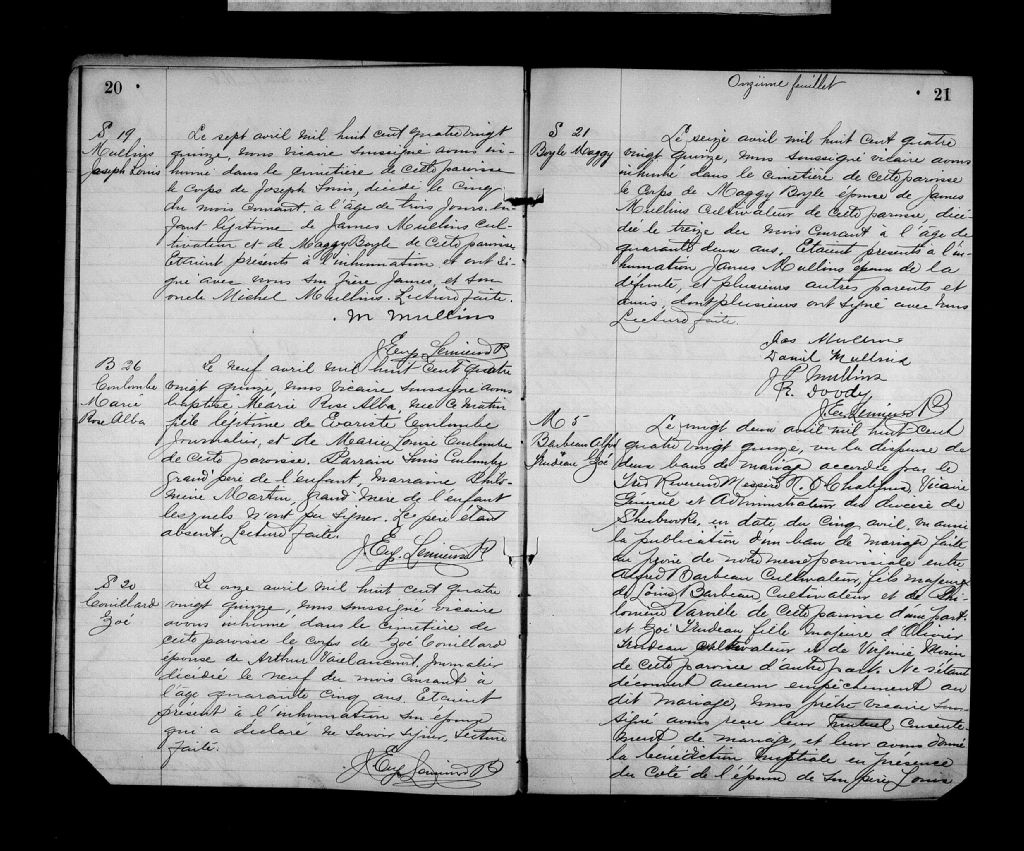 20
S 19
Mullins
Joseph Louis
Le sept avril mil huit cent quatre vingt
quinze, nous vicaire soussigné avons in-
humé dans le cimetière de cette paroisse
le corps de Joseph Louis, décédé le cinq
du mois courant, à l'âge de trois jours, en-
fant légitime de James Mullins cul-
tivateur et de Maggy Boyle de cette paroisse
Etaient présents à l'inhumation et ont si-
gné avec nous son frère James, et son
oncle Michel Mullins. Lecture faite.
M Mullins
J Eug. Lemieux Ptr
B 26
Coulombe
Marie
Rose Alba
Le neuf avril mil huit cent quatre
vingt quinze, nous vicaire soussigné avons
baptisé Marie Rose Alba, née ce matin
fille légitime de Evariste Coulombe
Journalier, et de Marie Louise Coulombe
de cette paroisse. Parrain Louis Coulombe
grand père de l'enfant, marraine Philo-
mène Martin, grand'mère de l'enfant
lesquels n'ont su signer. Le père étant
absent. Lecture faite.
J. Eug. Lemieux Ptr
S 20
Couillard
Zoé
Le onze avril mil huit cent quatre
vingt quinze, nous soussigné vicaire
avons inhumé dans le cimetière de
cette paroisse le corps de Zoé Couillard
épouse de Arthur Vaillancourt, Journalier
décédée le neuf du mois courant à
l'âge quarante cinq ans. Etaient
présent à l'inhumation son époux
qui a déclaré ne savoir signer. Lecture
faite.
J. Eug Lemieux Ptr
Onzième feuillet
21
S 21
Boyle Maggy
Le seize avril mil huit cent quatre
vingt quinze, nous soussigné vicaire avons
inhumé dans le cimetière de cette paroisse
le corps de Maggy Boyle épouse de James
Mullins cultivateur de cette paroisse, décé-
dée le treize du mois courant à l'âge de
quarante deux ans. Etaient présents à l'in-
humation James Mullins époux de la
défunte, et plusieurs autres parents et
amis, dont plusieurs ont signé avec nous
Lecture faite.
Jas Mullins
Daniel Mullins
J P. Mullins
R. Doody
J Eug Lemieux Ptr
M 5
Barbeau Alfred
Trudeau Zoé
Le vingt deux avril mil huit cent
quatre vingt quinze, vu la dispense de
deux bans de mariage accordée par le
Très Révérend Messire Chalifoux, Vicaire
Général et Administrateur du diocèse de
Sherbrooke, en date du cinq avril, vu aussi
la publication d'un ban de mariage faite
au prône de notre messe paroissiale entre
Alfred Barbeau cultivateur, fils majeur
de Louis Barbeau cultivateur et de Phi-
lomène de cette paroisse d'une part
et Zoé Trudeau fille majeure d'Olivier
Trudeau cultivateur et de Virginie Morin
de cette paroisse d'autre part. Ne s'étant
découvert aucun empêchement au
dit mariage, nous prêtre vicaire sous-
signé avons reçu leur mutuel consente-
ment de mariage, et leur avons donné
la bénédiction nuptiale en présence
du coté de l'époux de son père Louis